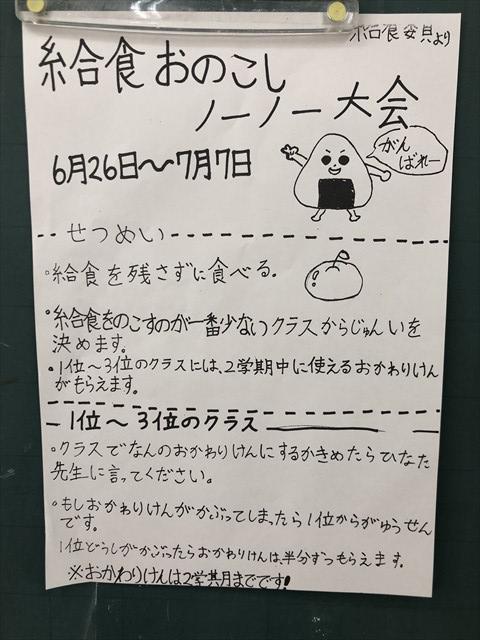 給食委員より
給食おのこし
ノーノー大会
6月26日〜7月7日
がん
ばれー
せつめい
◦給食を残さずに食べる。
•給食をのこすのが一番少ないクラスからじゅんいを
決めます。
•1位〜3位のクラスには、2学期中に使えるおかわりけん
がもらえます。
1位〜3位のクラス
◦クラスでなんのおかわりけんにするかきめたらひなた
先生に言ってください。
◦もしおかわりけんがかぶってしまったら1位からがゆうせん
です。
1位どうしがかぶったらおかわりけんは、半分ずつもらえます。
※おかわりけんは2学期までです!